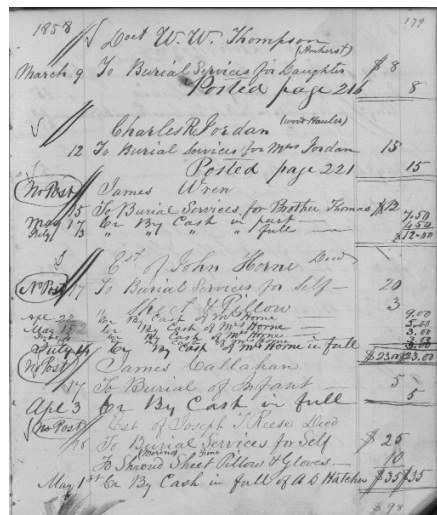 1858
179
Doct W. W. Thompson
(Amherst)
March 9 To Burial Services for Daughter $8
Posted page 216 8
Charles R Jordan (wood Hauler)
12 To Burial Services for Mrs Jordan 15
Posted page 221 15
No Post James Wren
15 To Burial Services for Brother Thomas $12
May 17 Cr By Cash in part 7,50
July 13 " " " " full 4,50
$12.00
Est of John Horne Decd
No Post 17 To Burial Services for Self 20
Sheet & Pillow 3
Apl 22 Cr By Cash of Mrs Horne 9.00
May 15 Cr By Cash of Mrs Horne 5.00
Cr By Cash of Mrs Horne 3.00
July 14 Cr By Cash of Mrs Horne in full
$23.00 $23.00
No Post James Callahan
17 To Burial of Infant 5
Apl 3 Cr By Cash in full 5
No Post Est of Joseph T Reese Decd
28 To Burial Services for Self $25
Morings Time
To Shroud Sheet Pillow & Gloves 10
May 1st Cr By Cash in full of A D Hatcher $35 $35
$98